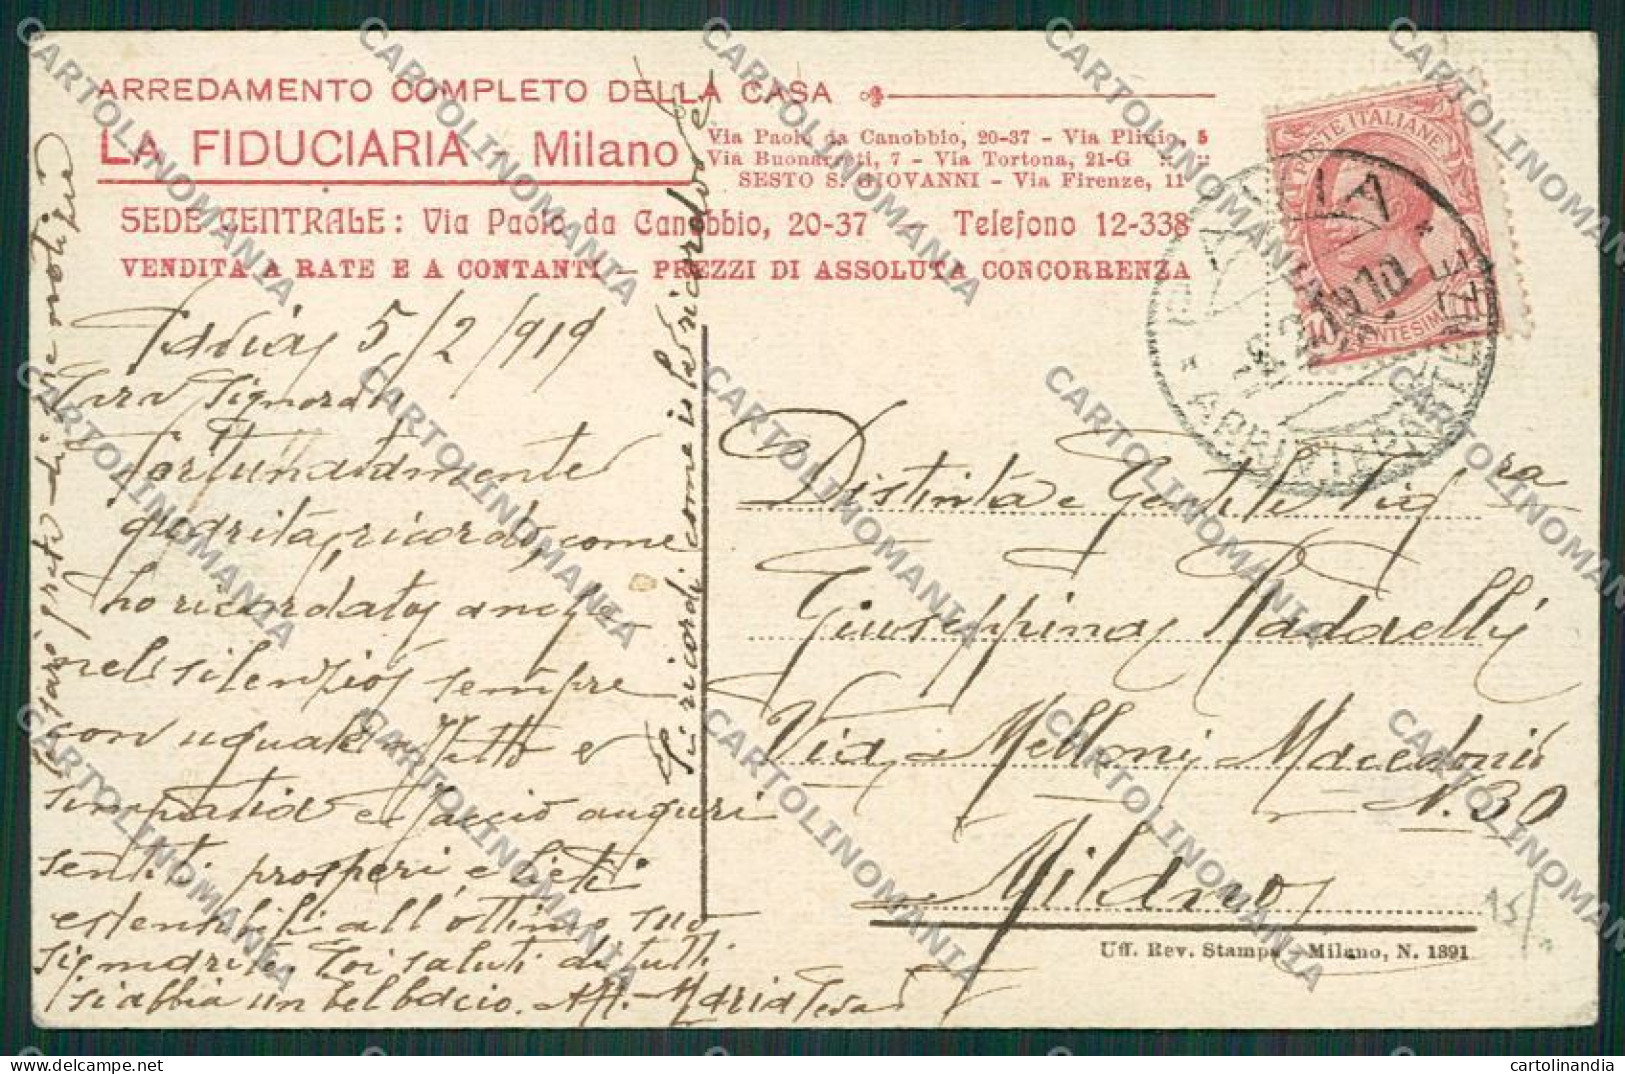 ARREDAMENTO COMPLETO DELLA CASA
LA FIDUCIARIA - Milano
Via Paolo da Canobbio, 20-37 - Via Plinio, 5
Via Buonarroti, 7 - Via Tortona, 21-G
SESTO S. GIOVANNI - Via Firenze, 11
SEDE CENTRALE: Via Paolo da Canobbio, 20-37 - Telefono 12-338
VENDITA A RATE E A CONTANTI - PREZZI DI ASSOLUTA CONCORRENZA
POSTE ITALIANE
10 CENTESIMI
ARRIVI E PARTENZE
5/2/919
Cara Signora
Fortunatamente
guarita, ricordo, come
ho ricordato anche
nel silenzio sempre
con uguale affetto e
simpatia e faccio auguri
sentiti prosperi e lieti
estensibili all'ottimo suo
signor marito. Coi saluti di tutti
si abbia un bel bacio. Aff. Maria
Si ricordi come io la ricordo e
mi sarà grato di sue notizie
Distinta e Gentile Sigra
Giuseppina
Via Melloni Macedonio
N. 30
Milano
Uff. Rev. Stampa - Milano, N. 1391
15/
CARTOLINOMANIA
cartolinandia